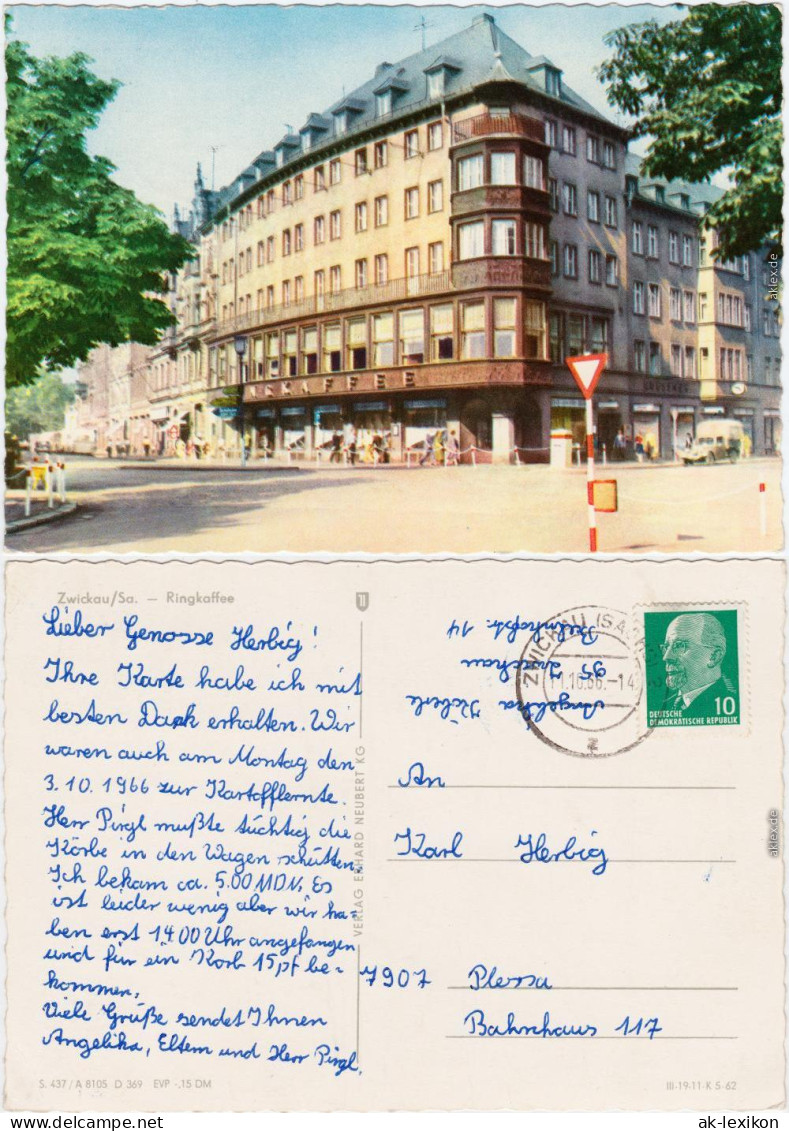 NGKAFFEE
aklex.de
Zwickau/Sa. — Ringkaffee
Lieber Genosse Herbig!
Ihre Karte habe ich mit
besten Dank erhalten. Wir
waren auch am Montag den
3.10.1966 zur Kartofflernte.
Herr Pirgl mußte tüchtig die
Körbe in den Wagen schütten.
Ich bekam ca. 5.00 MDN. Es
ist leider wenig aber wir ha-
ben erst 14.00 Uhr angefangen
und für ein Korb 15 pf be-
kommen.
Viele Grüße sendet Ihnen
Angelika, Eltern und Herr Pirgl.
S. 437/A 8105 D 369 EVP -.15 DM
VERLAG ERHARD NEUBERT KG
Angelika
95 Zwickau
Bahnhofstr. 14
ZWICKAU (SACHS)
11.10.66.-14
z
10
DEUTSCHE
DEMOKRATISCHE REPUBLIK
An
Karl Herbig
7907 Plessa
Bahnhaus 117
III-19-11-K 5-62
aklex.de
www.delcampe.net
ak-lexikon